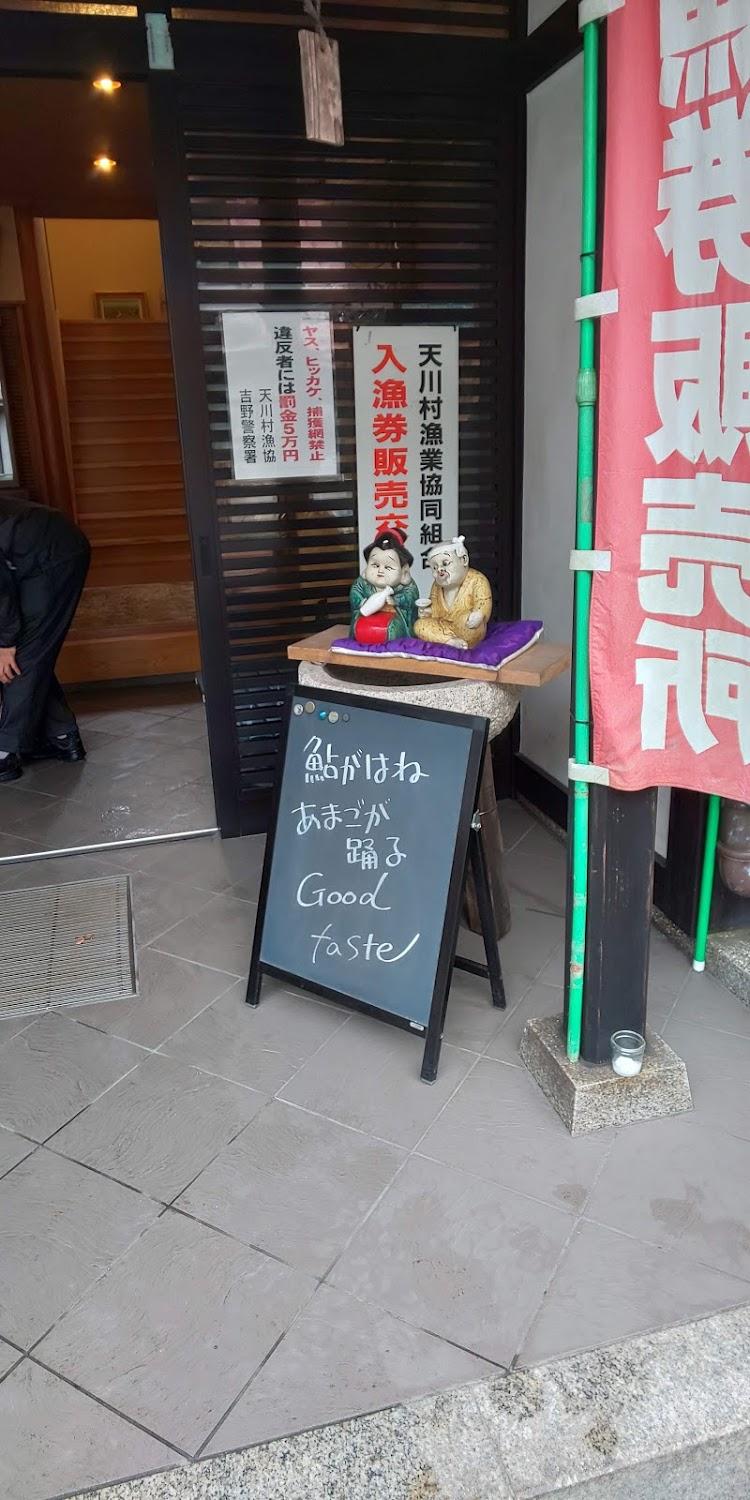 ヤス、ヒッカケ、捕獲網禁止
違反者には罰金5万円
天川村漁協
吉野警察署
天川村漁業協同組合
入漁券販売
漁券販売所
鮎がはね
あまごが
踊る
Good
taste